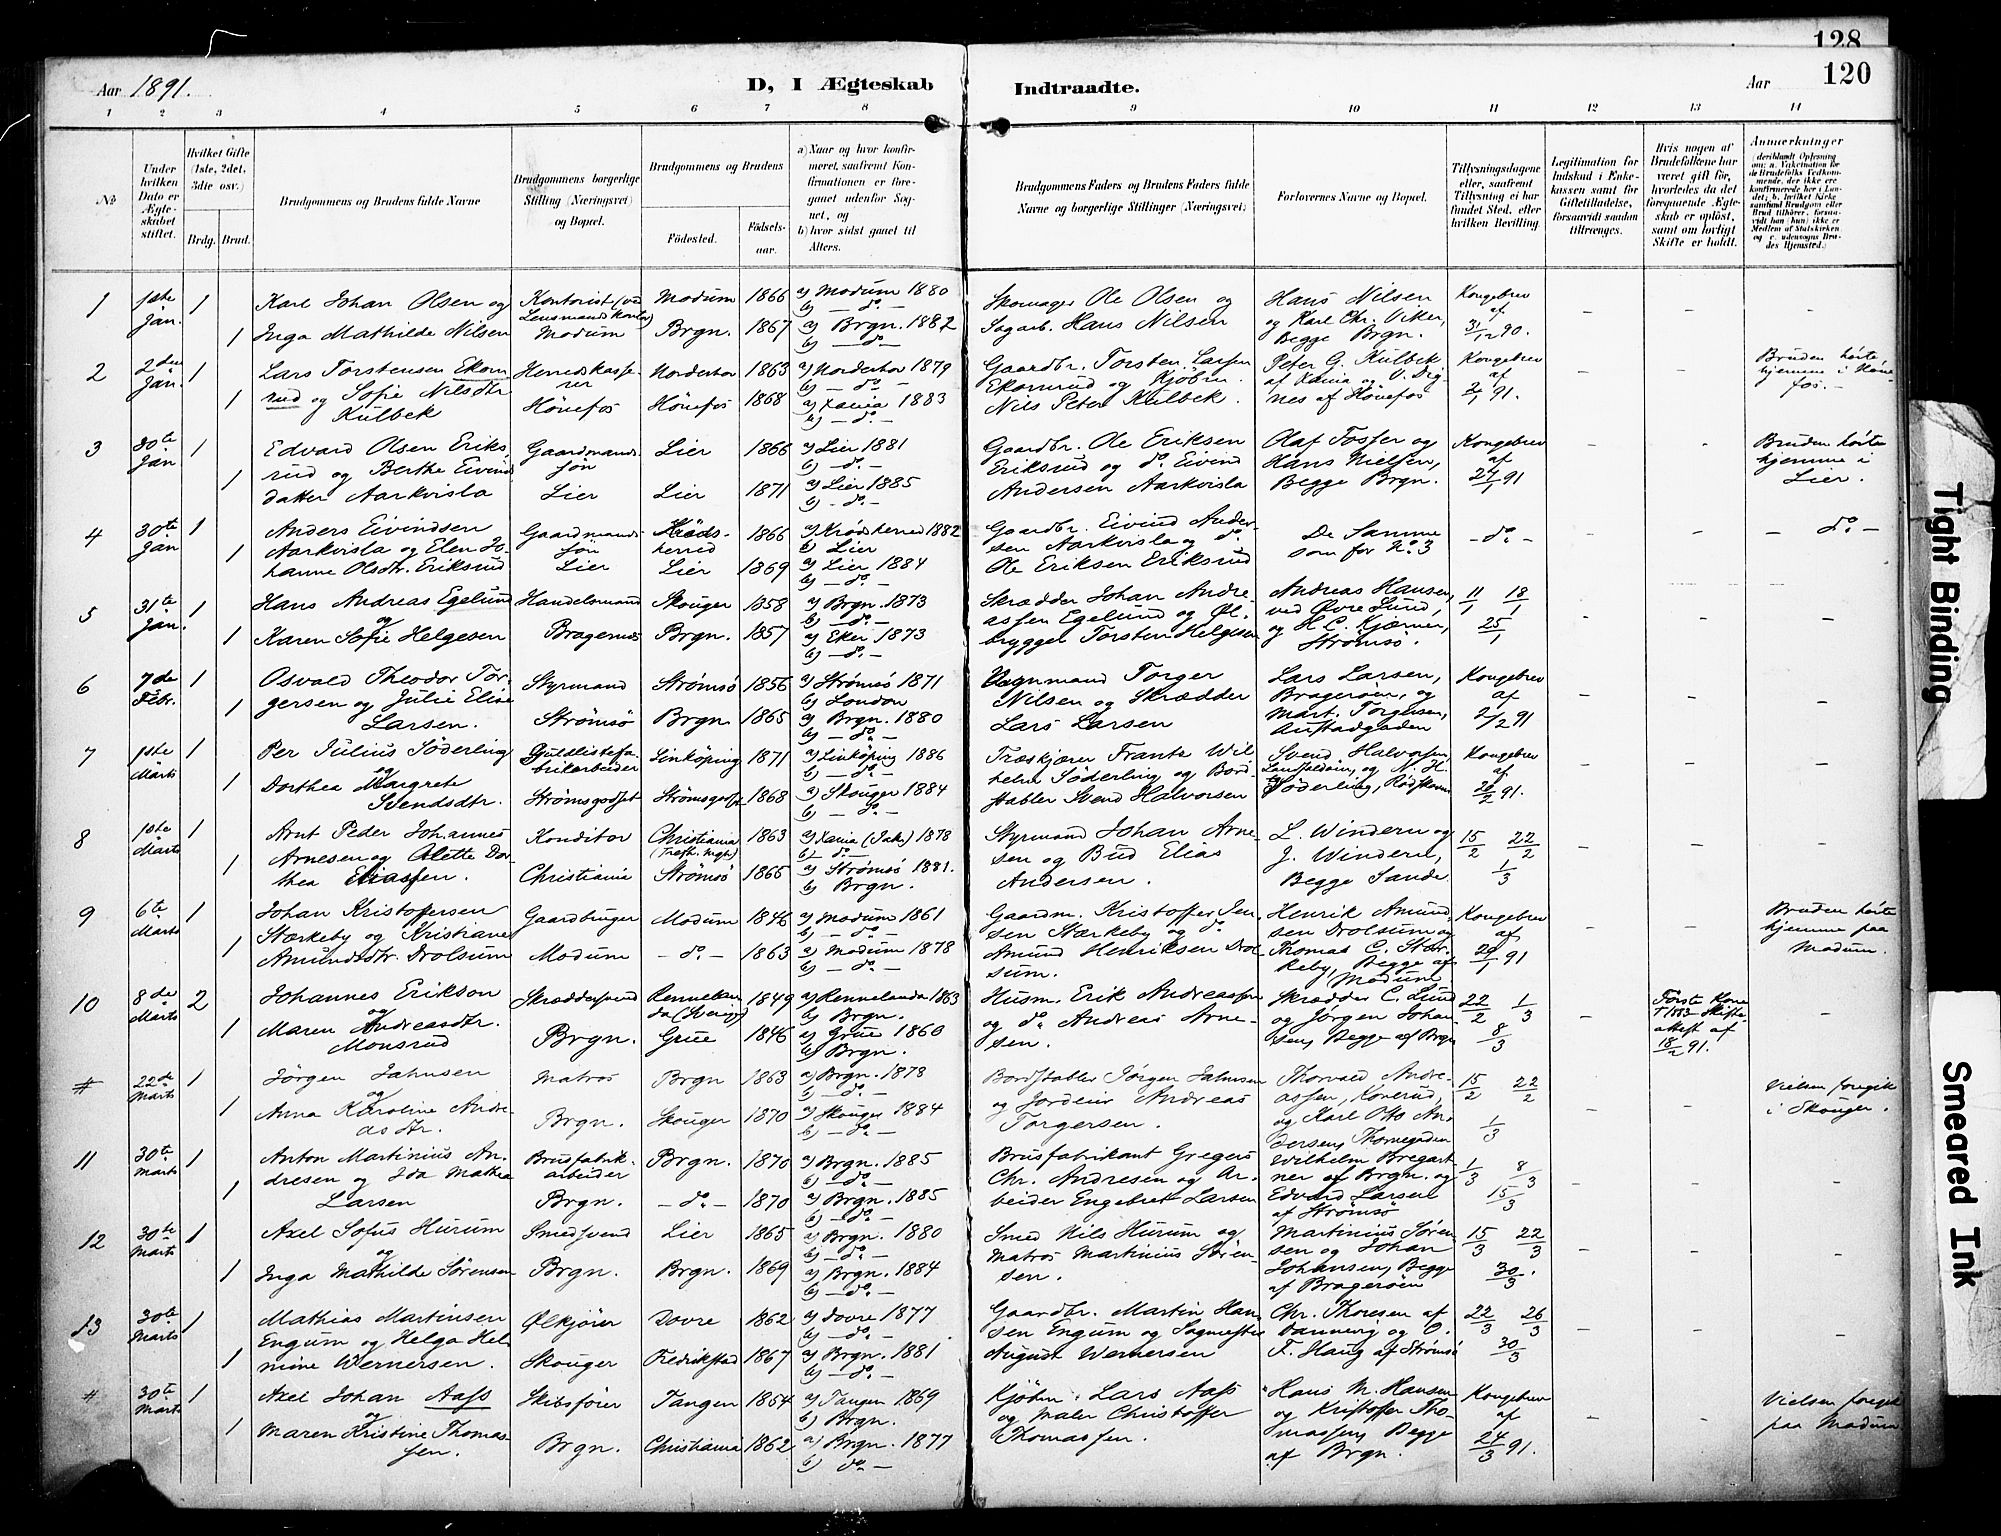 128
120
Aar 1891.
D, I Ægteskab Indtraadte.
Aar
1 2 3 4 5 6 7 8 9 10 11 12 13 14
№
Under hvilken Dato er Ægteskabet stiftet.
Hvilket Gifte (1ste, 2det, 3die osv.)
Brdg. Brud.
Brudgommens og Brudens fulde Navne
Brudgommens borgerlige Stilling (Næringsvei) og Bopæl.
Brudgommens og Brudens
Fødested. Fødselsaar.
a) Naar og hvor konfirmeret, saafremt Konfirmationen er foregaaet udenfor Sognet, og
b) hvor sidst gaaet til Alters.
Brudgommens Faders og Brudens Faders fulde Navne og borgerlige Stillinger (Næringsvei)
Forlovernes Navne og Bopæl.
Tillysningsdagene eller, saafremt Tillysning ei har fundet Sted, efter hvilken Bevilling.
Legitimation for Indskud i Enkekassen samt for Giftetilladelse, forsaavidt saadan tiltrænges.
Hvis nogen af Brudefolkene har været gift før, hvorledes da det foregaaende Ægteskab er opløst, samt om lovligt Skifte er holdt.
Anmærkninger
1 1ste Jan. 1 Karl Johan Olsen og Kontorist (ved Lensmandskontor) Modum 1866 a) Modum 1880 b) – do – Skomager Ole Olsen og Hans Nilsen Kongebrev af
1 Inga Mathilde Nilsen Modum Brgn. 1867 a) Brgn. 1882 b) – do – Sagarb. Hans Nilsen og Karl Chr. Viker, Begge Brgn. 31/12 90.
2 2den Jan. 1 Lars Torstensen Ekorn Herredskasserer Norderhov 1863 a) Norderhov 1879 b) – do – Gaardbr. Torsten Larsen Peter G. Kulbek Kongebrev Bruden hørte
1 rud og Sofie Nilsdtr Kulbek Hönefos Hönefos 1868 a) Xania 1883 b) – do – Ekornrud og Kjöbm. Nils Peter Kulbek. af Xania og nes af Hönefos af 2/1 91. hjemme i Hönefos. –
3 30te Jan 1 Edvard Olsen Eriks Gaardmands Lier 1866 a) Lier 1881 b) – do – Gaardbr. Ole Eriksen Olaf Tosser og Kongebrev Bruden hørte
1 rud og Berthe Eivinds datter Aarkvisla Søn Lier Lier 1871 a) Lier 1885 b) – do – Eriksrud og do. Eivind Andersen Aarkvisla Hans Nielsen, Begge Brgn. af 27/1 91 hjemme i Lier.
4 30te Jan 1 Anders Eivindsen Gaardmands Krødsherred 1866 a) Krødsherred 1882 b) Lier Gaardbr. Eivind Andersen De Samme – do – – do –
1 Aarkvisla og Elen Johanne Olsdtr. Eriksrud Søn Lier Lier 1869 a) Lier 1884 b) – do – Aarkvisla og do. Ole Eriksen Eriksrud som for No. 3
5 31te Jan. 1 Hans Andreas Egelund og Handelsmand Skouger 1858 a) Brgn. 1873 b) – do – Skrædder Johan Andre- Andreas Hansen, 11/1 18/1
1 Karen Sofie Helgesen Bragernes Brgn. 1857 a) Eker 1873 b) – do – assen Egelund og Ølbrygger Torsten Helgesen ved Øvre Lund, og H. C. Kjærner, Strømsö. 25/1
6 7de Febr. 1 Osvald Theodor Tor- Styrmand Strømsö 1856 a) Strømsö 1871 b) London Vognmand Torger Lars Larsen, Kongebrev
1 gersen og Julie Elise Larsen. Strømsö Brgn. 1865 a) Brgn. 1880 b) – do – Nilsen og Skrædder Lars Larsen Bragerøen, og Mart. Torgersen, Austadgaden af 2/2 91
7 1ste Marts 1 Per Julius Söderling og Guldlistefabrikarbeider Linköping 1871 a) Linköping 1886 b) – do – Træskjærer Frants Wil- Svend Halvorsen, Kongebrev
1 Dorthea Margrete Svendsdtr. Strömsgodset Strömsgodset 1868 a) Skouger 1884 b) – do – helm Söderling og Bordstabler Svend Halvorsen og N. H. Söderling, af 28/2 91.
8 1ste Marts 1 Arnt Peder Johannes Konditor Christiania 1863 a) Xania (Jak.) 1878 b) – do – Styrmand Johan Arne- L. Windern og 15/2 22/2
1 Arnesen og Olette Dorthea Eliassen. Christiania Strømsö 1865 a) Strömsö 1881. b) Brgn. sen og Bud Elias Andersen. J. Windern, Begge Sande. 1/3
9 6te Marts 1 Johan Kristoffersen Gaardbruger Modum 1846 a) Modum 1861 b) – do – Gaardm. Kristoffer Jen- Henrik Amund- Kongebrev Bruden hørte
1 Stærkeby og Kristiane Amundsdtr. Drolsum Modum – do – 1863 a) Modum 1878 b) – do – sen Stærkeby og do Amund Henriksen Drolsum. sen Drolsum og Thomas C. Stærkeby, Begge af Modum af 29/1 91 hjemme paa Modum.
10 8de Marts 2 Johannes Erikson og Skræddersvend Rennelanda (Sverig) 1849 a) Rennelanda 1863 b) Brgn. Husm. Erik Andreassen Skrædder C. Lund 22/2 1/3 Første Kone † 1883 Skifteattest af 18/2 91.
1 Maren Andreasdtr. Monsrud Brgn. Grue 1846 a) Grue 1860 b) Brgn. og do. Andreas Arnesen. og Jörgen Johansen, Begge af Brgn 8/3
# 22de Marts 1 Jörgen Jahnsen og Matros Brgn 1863 a) Brgn. 1878 b) – do – Bordstabler Jørgen Jahnsen Thorvald Andre- 15/2 22/2 Vielsen foregik
1 Anna Karoline Andreasdtr. Brgn. Skouger 1870 a) Skouger 1884 b) – do – og Jordeier Andreas Torgersen. assen, Koverud, og Karl Otto Andersen, Thornegaden 1/3 i Skouger.
11 30te Marts 1 Anton Martinius An- Brusfabrikarbeider Brgn. 1870 a) Brgn. 1885 b) – do – Brusfabrikant Gregers Wilhelm Bregart 1/3 8/3
1 dresen og Ida Mathea Larsen Brgn. – do – 1870 a) Brgn. 1885 b) – do – Chr. Andresen og Arbeider Engebret Larsen ner af Brgn. og Edvard Larsen af Strømsö 15/3
12 30te Marts 1 Axel Sofus Hurum og Smedsvend Lier 1865 a) Brgn. 1880 b) – do – Smed Nils Hurum og Martinius Sören- 15/3 22/3
1 Inga Mathilde Sørensen Brgn. Brgn. 1869 a) Brgn. 1884 b) – do – Matros Martinius Sørensen. sen og Johan Johansen, Begge af Bragerøen 30/3.
13 30te Marts 1 Mathias Martinsen Ølkjörer Dovre 1862 a) Dovre 1877 b) – do – Gaardbr. Martin Han- Chr. Thoresen af 22/3 26/3
1 Engum og Helga Helmine Wernersen. Skouger Fredrikstad 1867 a) Brgn. 1881 b) – do – sen Engum og Sagmester August Wernersen Danning og O. F. Haug af Strømsö 30/3
# 30te Marts 1 Axel Johan Aass og Skibsförer Tangen 1854 a) Tangen 1869 b) Brgn. Kjöbm. Lars Aass Hans M. Hansen Kongebrev Vielsen foregik
1 Maren Kristine Thomassen. Brgn. Christiania 1862 a) Brgn. 1877 b) do – og Maler Christoffer Thomassen. og Kristoffer Thomassen, Begge af Brgn. af 24/3 91. paa Modum
Tight Binding
Smeared Ink